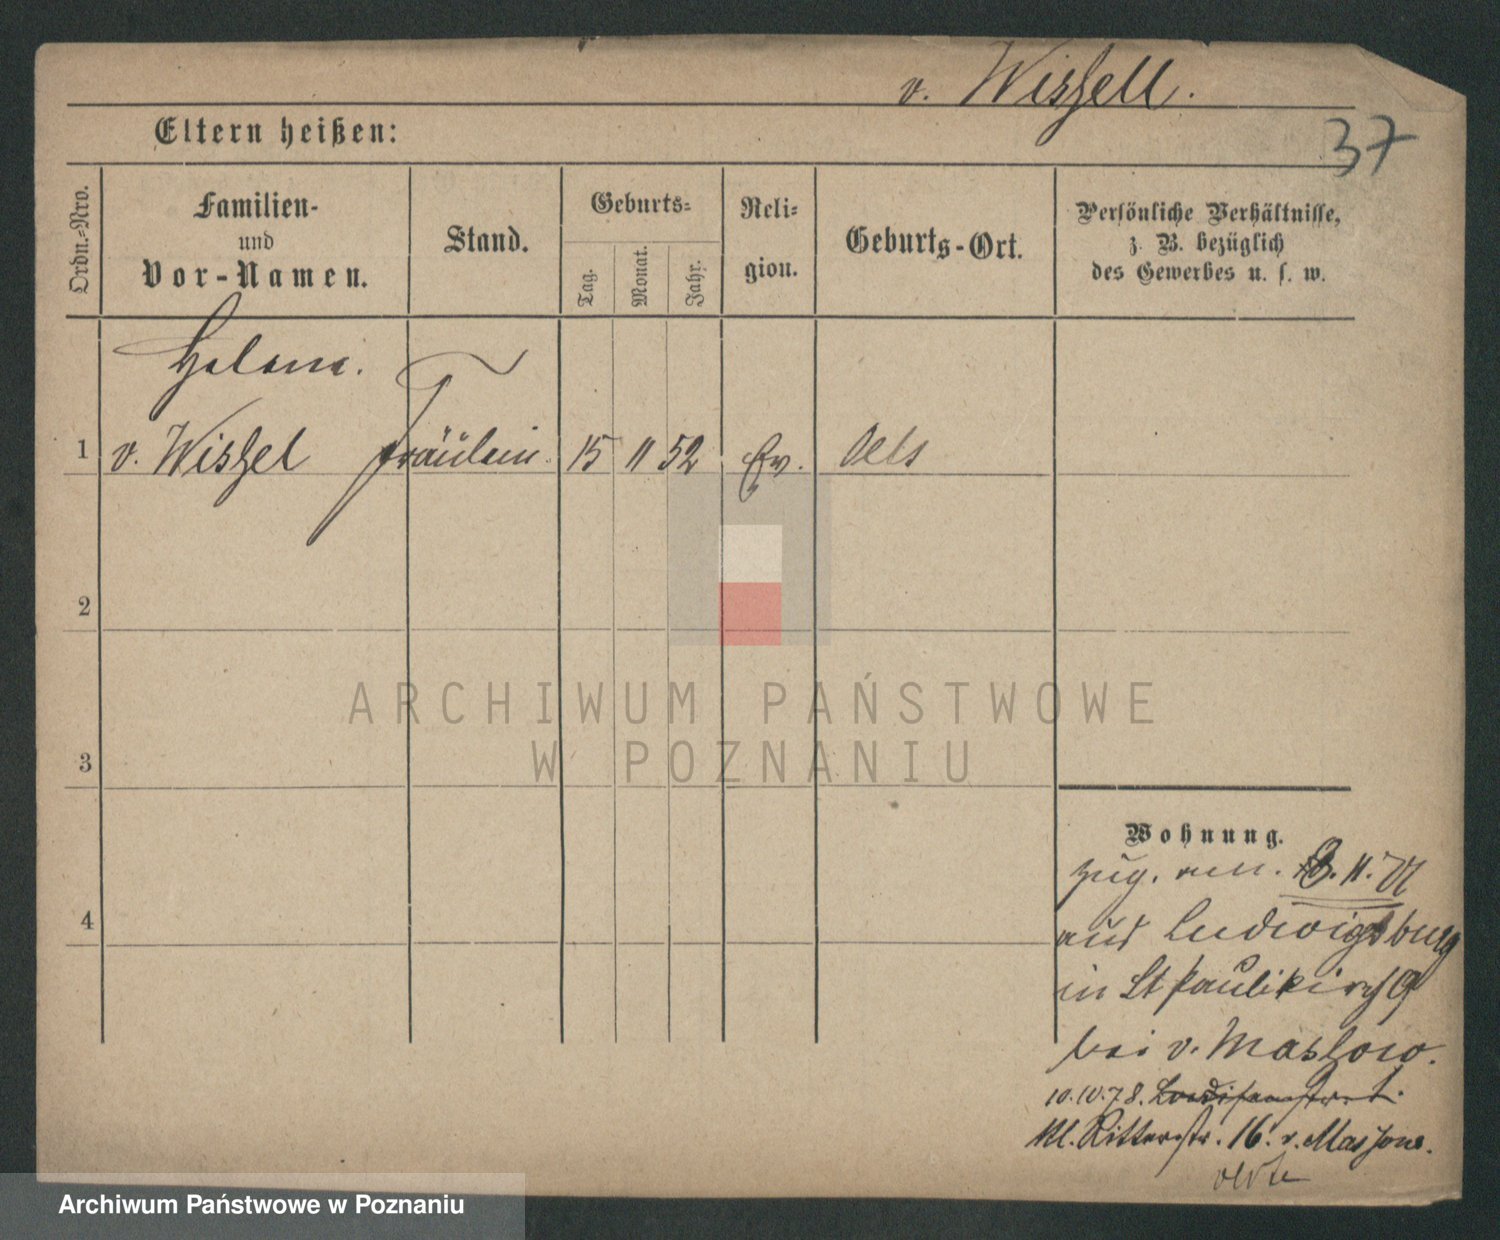 v. Wishell.
37
Eltern heißen:
Ordn.-Nro.
Familien-
und
Vor-Namen.
Stand.
Geburts-
Tag.
Monat.
Jahr.
Reli-
gion.
Geburts-Ort.
Persönliche Verhältnisse,
z. B. bezüglich
des Gewerbes u. s. w.
Helene.
1 v. Wishel Fräulein 15 11 52 Ev. Oels
2
3
4
ARCHIWUM PAŃSTWOWE
W POZNANIU
Wohnung.
zug. am . 11.
aus Ludwigsburg
in St Paulikirch 9
bei v.
10.10.78.
Kl. Ritterstr. 16. v.
Archiwum Państwowe w Poznaniu